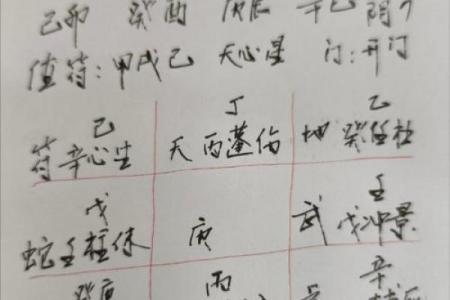 己卯 癸酉 庚辰 辛巳 阴
值符:甲戌己 天心星 门:开门
己 丁 乙
符辛心生 天丙蓬伤 地癸任杜
戊 壬
蛇壬柱休 庚 武戊冲景
丙 辛
癸庚